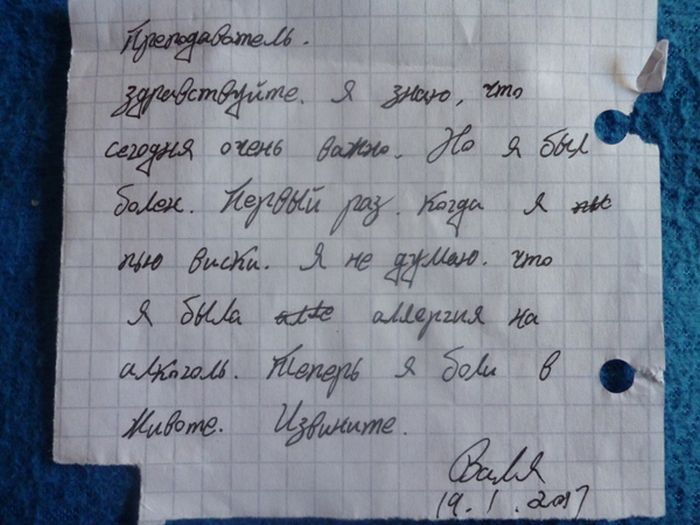 Преподаватель.
здравствуйте. Я знаю, что
сегодня очень важно. Но я был
болен. Первый раз. Когда я
пью виски. Я не думаю. что
я была аллергия на
алкоголь. Теперь я боли в
животе. Извините.
Валя
19.1.2017